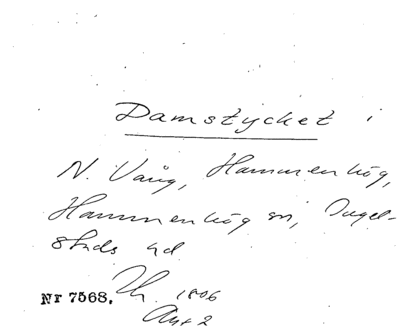 Damstycket i
N. Vång, Hammenhög,
Hammenhög sn, Ingel-
stads hd
Nr 7568. Th. 1806
Ant 2